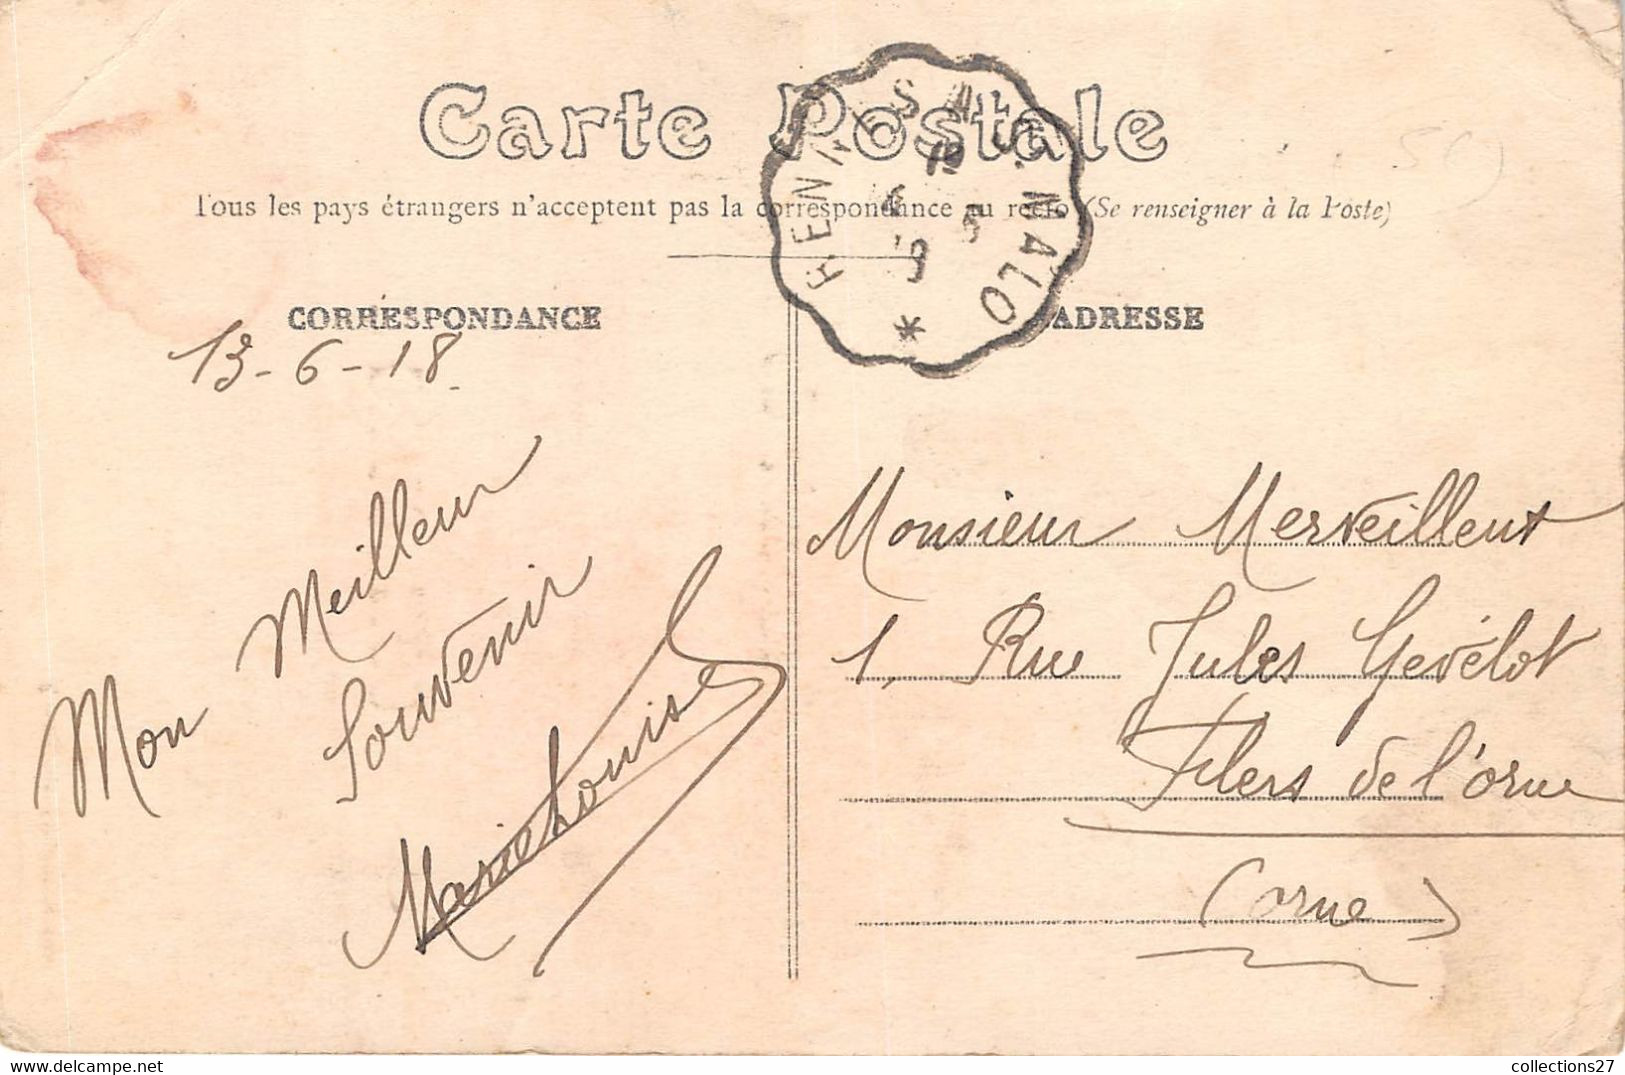 Carte Postale
Tous les pays étrangers n'acceptent pas la correspondance au recto (Se renseigner à la Poste)
RENNES S. MALO
*
CORRESPONDANCE
ADRESSE
13-6-18.
Mon Meilleur
Souvenir
Marie Louise
Monsieur Merveilleux
1, Rue Jules Gevélot
Flers de l'orne
(orne)
collections27